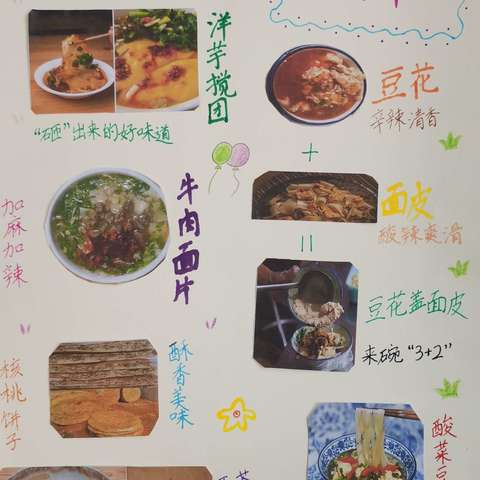 洋芋搅团
"砸"出来的好味道
豆花
辛辣清香
+
面皮
酸辣爽滑
=
豆花盖面皮
来碗"3+2"
牛肉面片
加麻加辣
酥香美味
核桃饼子
酸菜豆